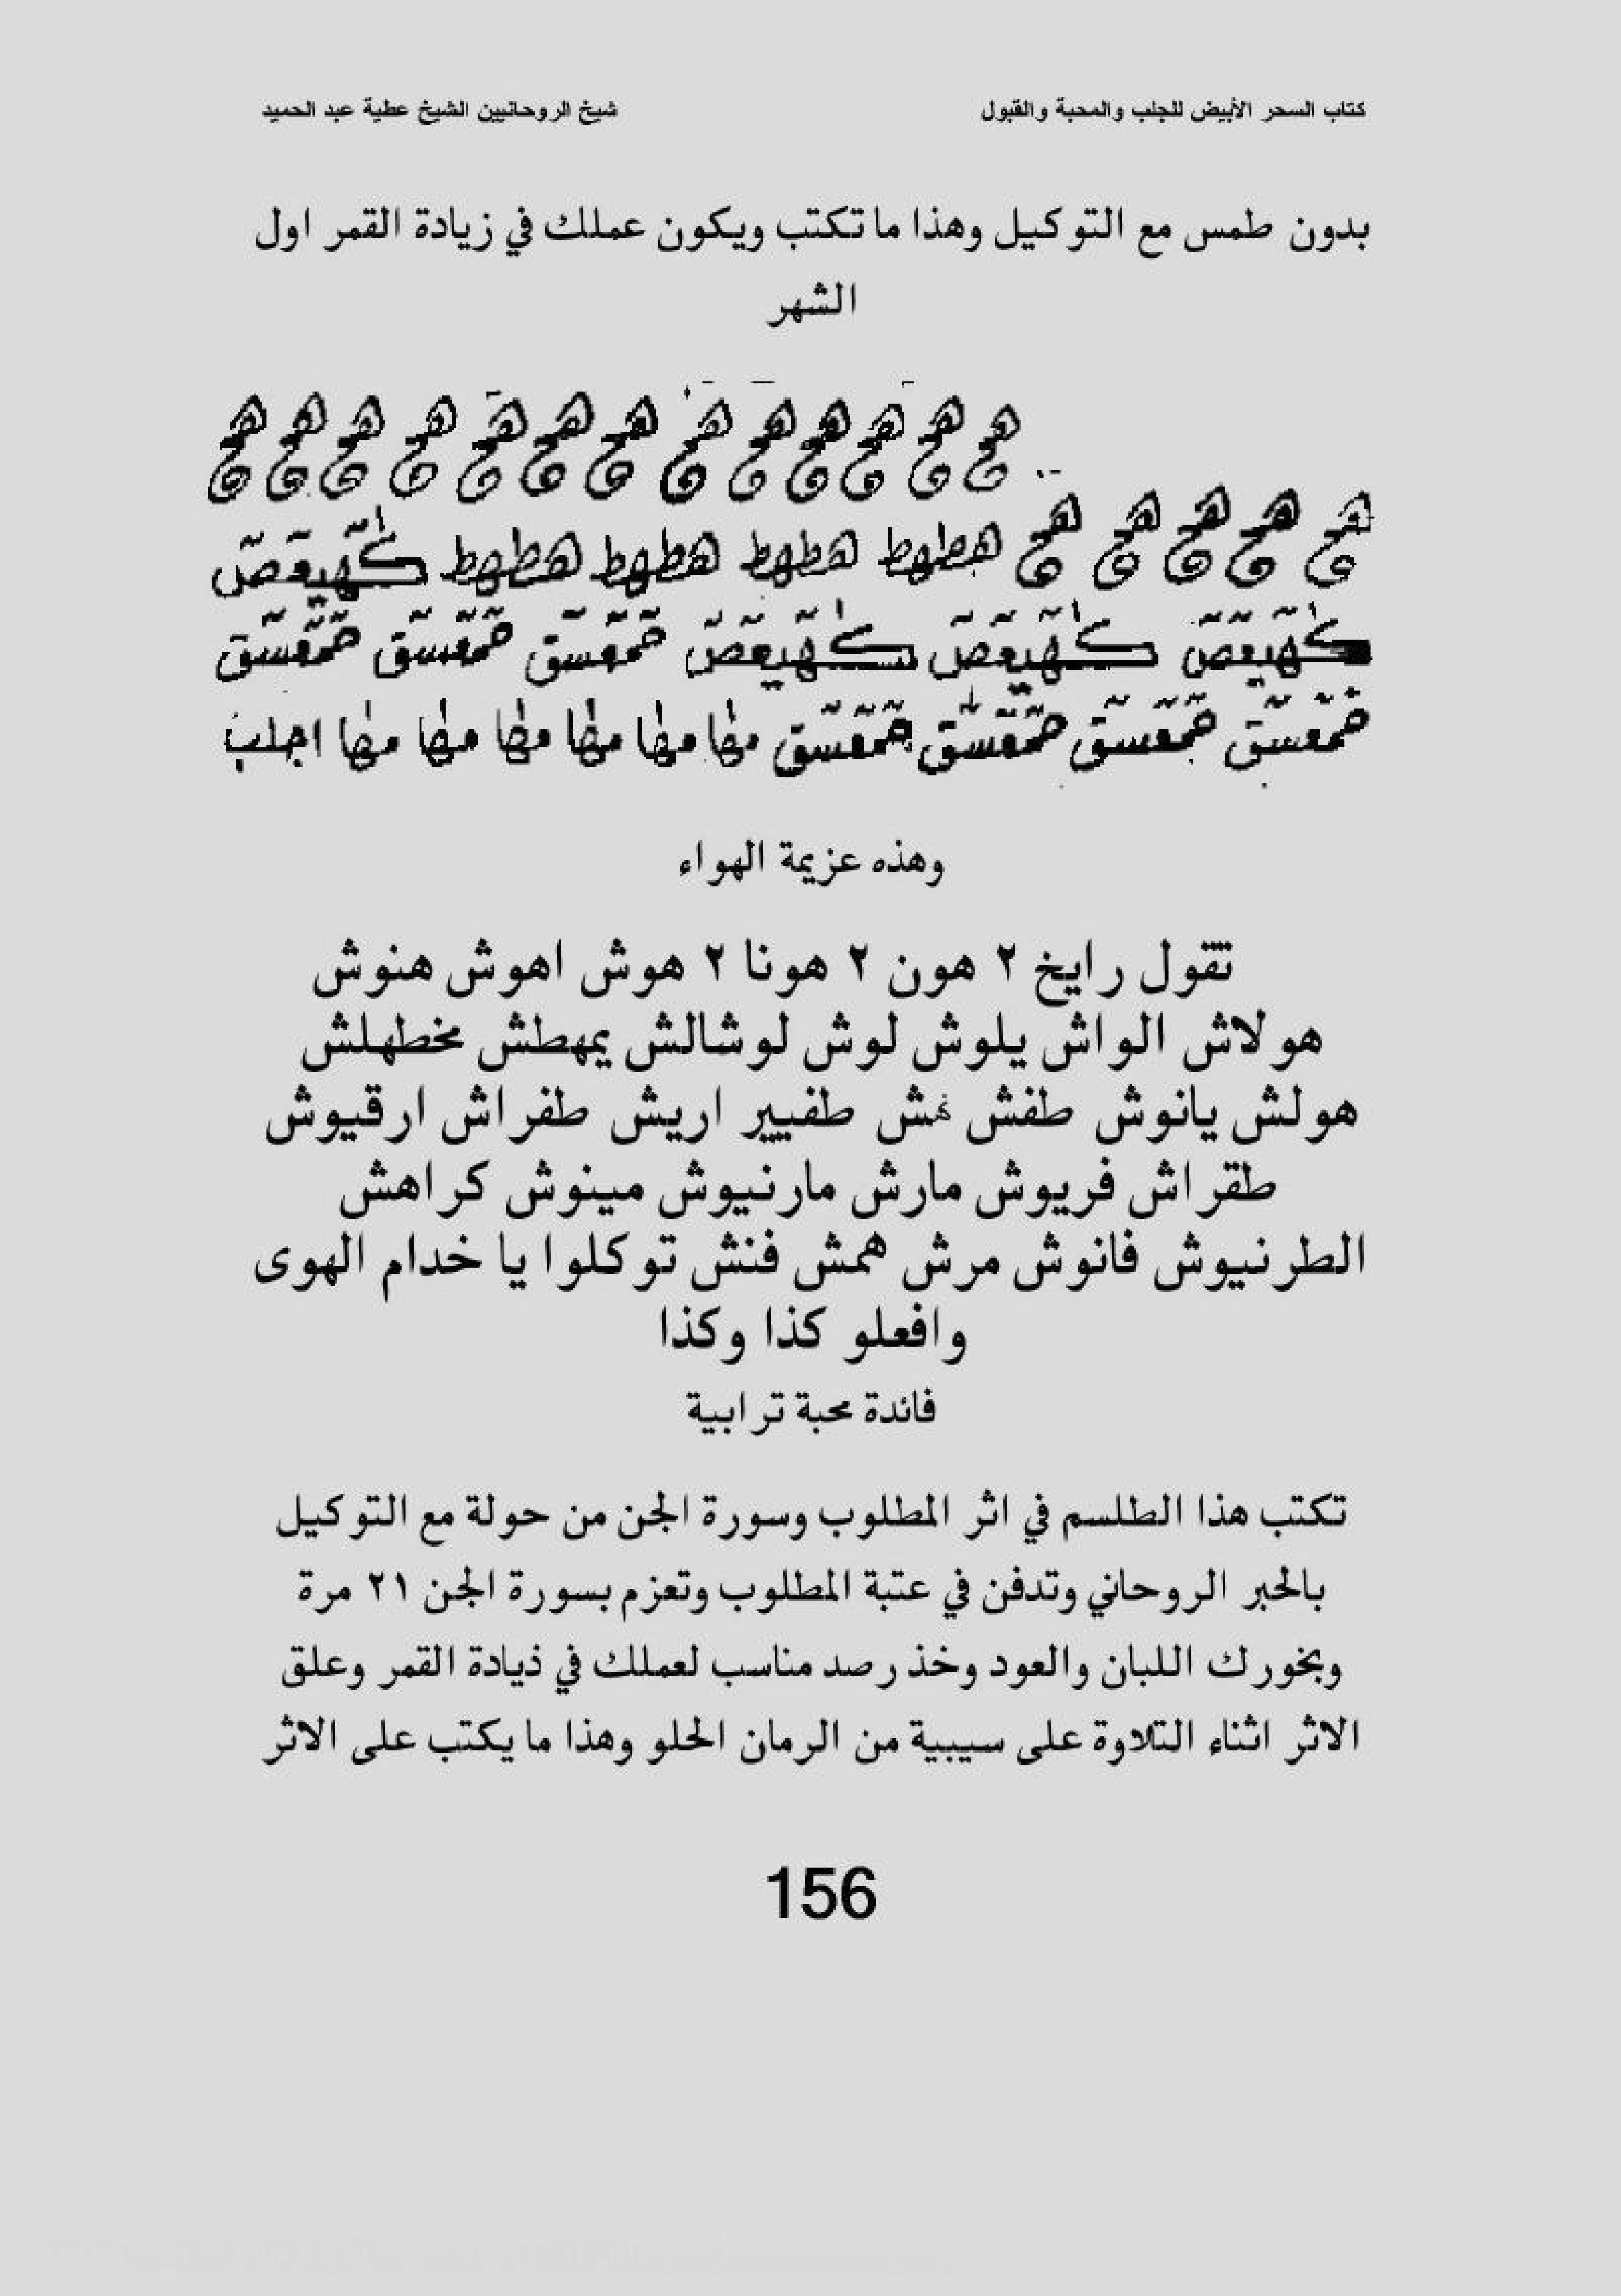 كتاب السحر الأبيض للجلب والمحبة والقبول
شيخ الروحانيين الشيخ عطية عبد الحميد
بدون طمس مع التوكيل وهذا ما تكتب ويكون عملك في زيادة القمر اول
الشهر
هج هج هج هج هج هج هج هج هج هج هج هج هج
هج هج هج هج هج هطهط هطهط هطهط هطهط كهيعص
كهيعص كهيعص كهيعص حمعسق حمعسق حمعسق
حمعسق حمعسق حمعسق حمعسق مطا مطا مطا مطا مطا مطا اجلب
وهذه عزيمة الهواء
تقول رايخ ٢ هون ٢ هونا ٢ هوش اهوش هنوش
هولاش الواش يلوش لوش لوشالش يمهطش مخطهلش
هولش يانوش طفش نمش طفيير اريش طفراش ارقيوش
طقراش فريوش مارش مارنيوش مينوش كراهش
الطرنيوش فانوش مرش همش فنش توكلوا يا خدام الهوى
وافعلو كذا وكذا
فائدة محبة ترابية
تكتب هذا الطلسم في اثر المطلوب وسورة الجن من حولة مع التوكيل
بالحبر الروحاني وتدفن في عتبة المطلوب وتعزم بسورة الجن ٢١ مرة
وبخورك اللبان والعود وخذ رصد مناسب لعملك في ذيادة القمر وعلق
الاثر اثناء التلاوة على سيبية من الرمان الحلو وهذا ما يكتب على الاثر
156